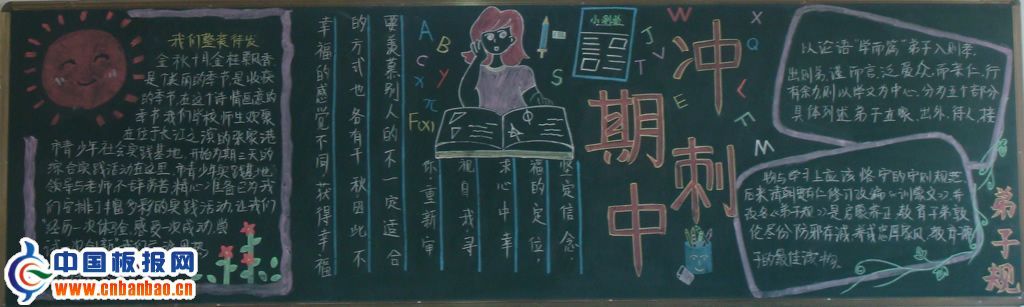 我们整装待发
金秋十月金桂飘香
是佳丽的季节是收获
的季节,在这个诗情画意的
季节我们学校师生欢聚
在位于长江之滨的张家港
市青少年社会实践基地,开始为期三天的
综合实践活动在这里,市青少年实践基地
领导与老师不辞劳苦精心准备已为我
们安排了丰富多彩的实践活动,让我们
经历一次体验,感受一次成功,
幸福的感觉不同获得幸福
的方式也各有千秋因此不
要羡慕别人的不一定适合
你重新审
视自我寻
求心中幸
福的定位
坚定信念
A B C X Y π F(x) S
小刺激
J V T W E Q X C F M
冲刺
期中
以论语"学而篇"弟子入则孝,
出则弟,谨而信,泛爱众,而亲仁,行
有余力则以学文为中心,分为五个部分
具体列述弟子在家,出外,待人,接
物与学习上应该恪守的守则规范
后来清朝贾存仁修订改编《训蒙文》,并
改名《弟子规》是启蒙养正,教育子弟敦
伦尽份防邪存诚,养成忠厚家风,教育
子的最佳读物。
弟子规
中国板报网
www.cnbanbao.cn